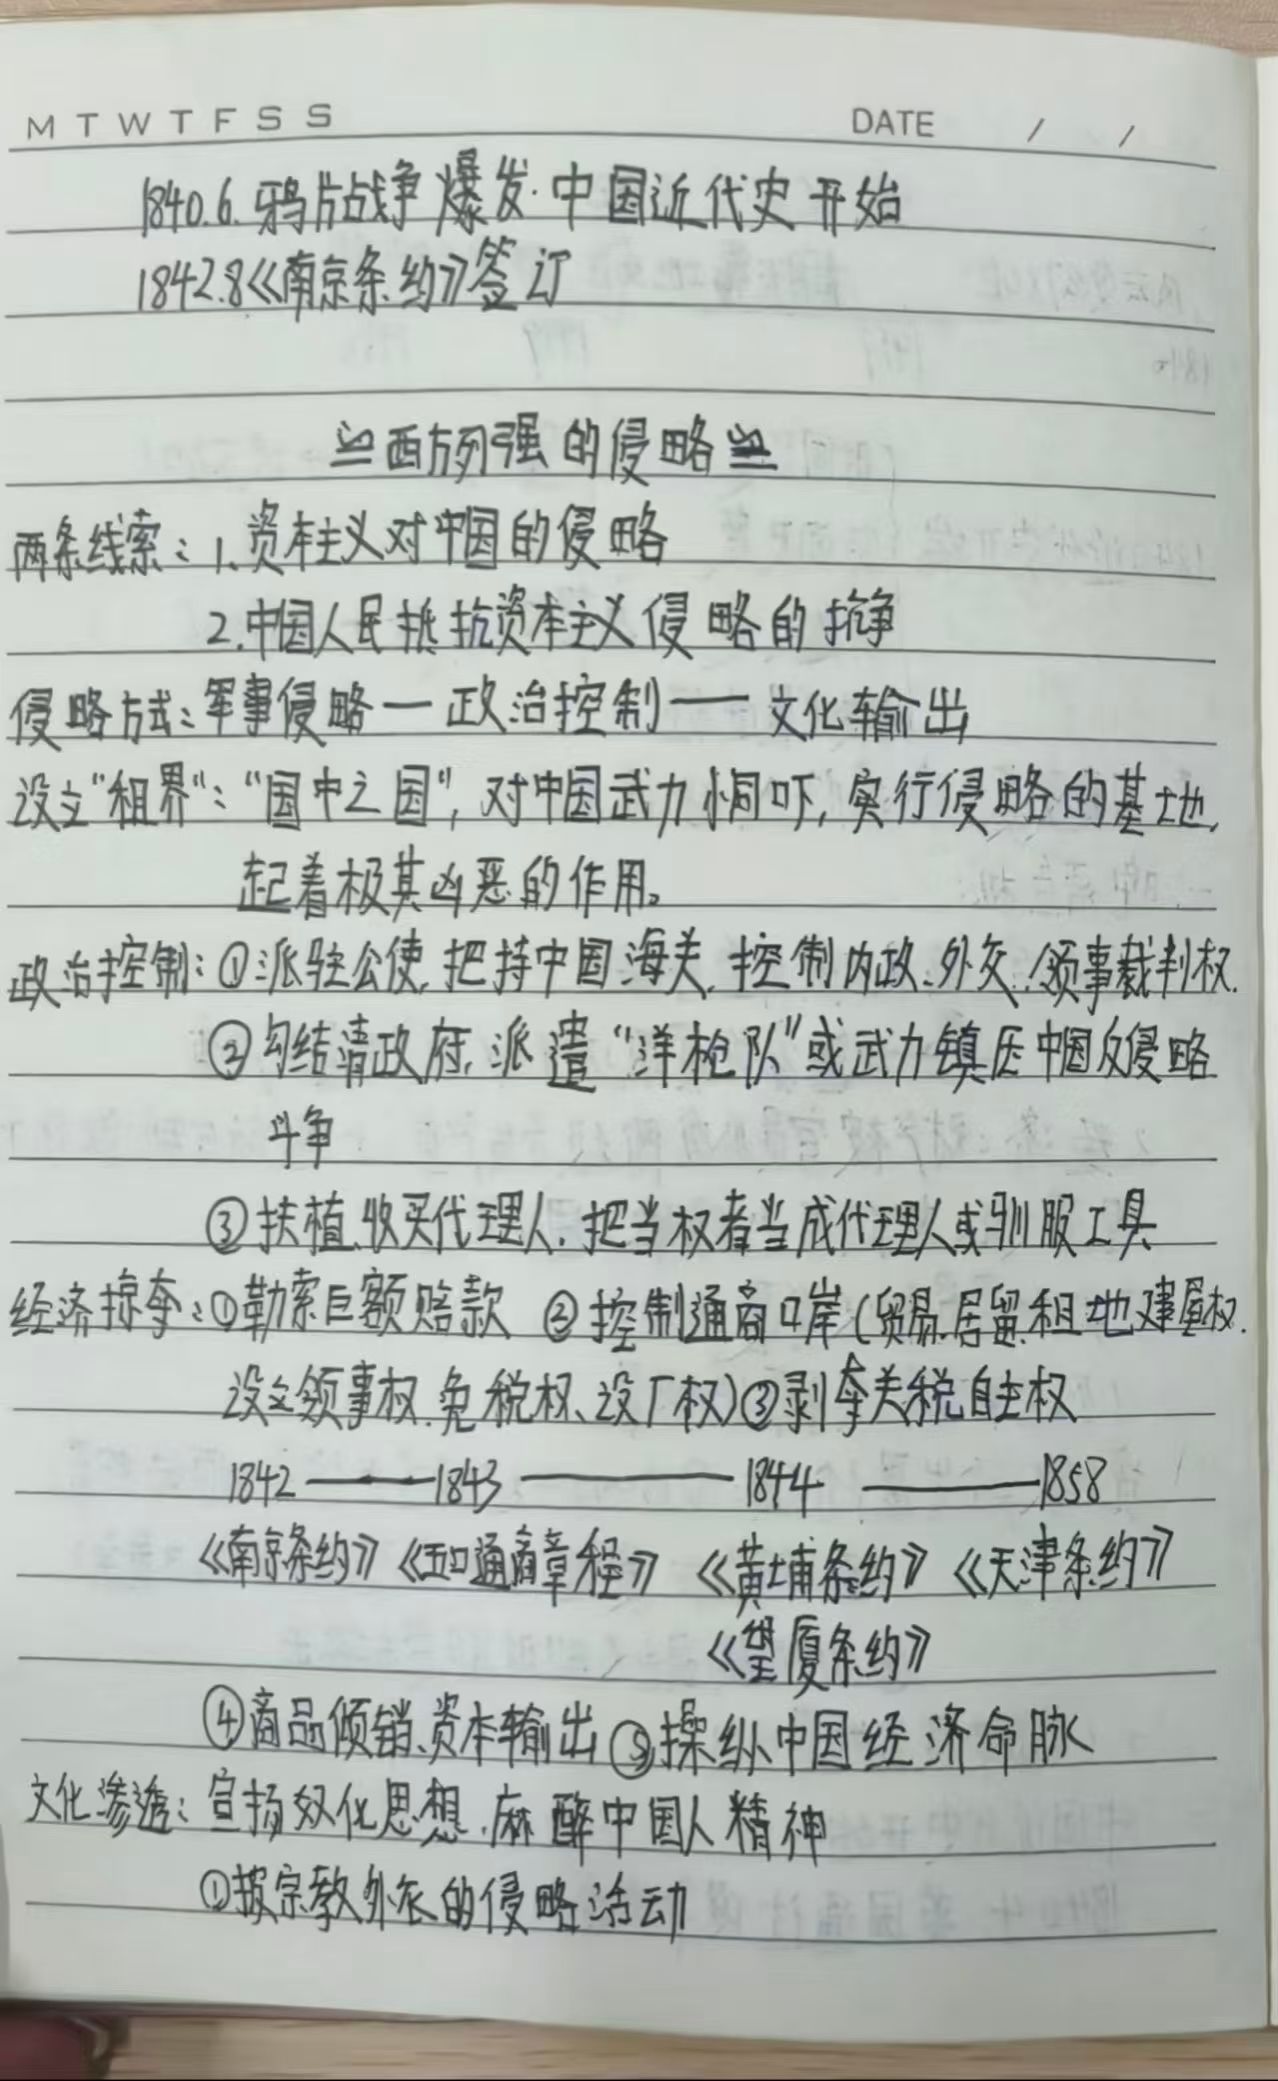 M T W T F S S DATE / /
1840.6.鸦片战争爆发.中国近代史开始
1842.8《南京条约》签订
西方列强的侵略
两条线索：1.资本主义对中国的侵略
2.中国人民抵抗资本主义侵略的抗争
侵略方式：军事侵略——政治控制——文化输出
设立“租界”：“国中之国”，对中国武力恫吓，实行侵略的基地，
起着极其凶恶的作用。
政治控制：①派驻公使，把持中国海关，控制内政、外交，领事裁判权.
②勾结清政府，派遣“洋枪队”或武力镇压中国反侵略
斗争
③扶植、收买代理人，把当权者当成代理人或驯服工具
经济掠夺：①勒索巨额赔款 ②控制通商口岸（贸易、居留、租地建屋权、
设立领事权、免税权、设厂权）③剥夺关税自主权
1842——1843——1844——1858
《南京条约》《五口通商章程》《黄埔条约》《天津条约》
《望厦条约》
④商品倾销、资本输出⑤操纵中国经济命脉
文化渗透：宣扬奴化思想，麻醉中国人精神
①披宗教外衣的侵略活动